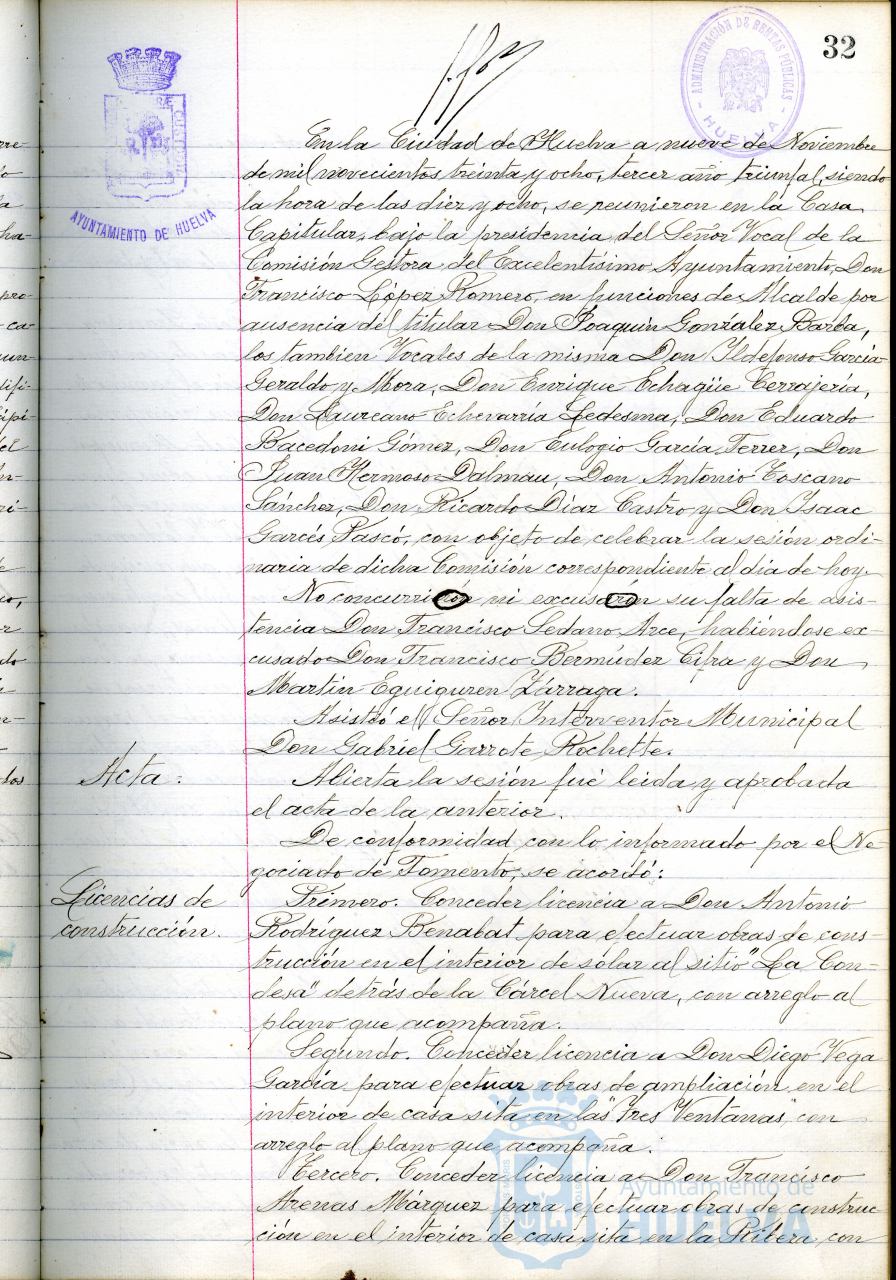 32
ADMINISTRACIÓN DE RENTAS PÚBLICAS
HUELVA
AYUNTAMIENTO DE HUELVA
En la Ciudad de Huelva a nueve de Noviembre
de mil novecientos treinta y ocho, tercer año triunfal, siendo
la hora de las diez y ocho, se reunieron en la Casa
Capitular, bajo la presidencia del Señor Vocal de la
Comisión Gestora del Excelentísimo Ayuntamiento, Don
Francisco López Romero, en funciones de Alcalde por
ausencia del titular Don Joaquin González Barba,
los tambien Vocales de la misma Don Ildefonso García
Geraldo y Mora, Don Enrique Echagüe Cerrajería,
Don Laureano Echevarría Ledesma, Don Eduardo
Bacedoni Gómez, Don Eulogio García Ferrer, Don
Juan Hermoso Dalmau, Don Antonio Toscano
Sánchez, Don Ricardo Díaz Castro y Don Isaac
Garcés Pascó, con objeto de celebrar la sesión ordi-
naria de dicha Comisión correspondiente al día de hoy.
No concurrirón ni excusarón su falta de asis-
tencia Don Francisco Sedano Arce, habiéndose ex-
cusado Don Francisco Bermúdez Cifra y Don
Martin Eguiguren Zárraga.
Asistió el Señor Interventor Municipal
Don Gabriel Garrote Rochette.
Acta:
Abierta la sesión fué leida y aprobada
el acta de la anterior.
De conformidad con lo informado por el Ne-
gociado de Fomento, se acordó:
Licencias de
construcción.
Primero. Conceder licencia a Don Antonio
Rodríguez Benabat para efectuar obras de cons-
trucción en el interior de solar al sitio "La Con-
desa" detrás de la Cárcel Nueva, con arreglo al
plano que acompaña.
Segundo. Conceder licencia a Don Diego Vega
García para efectuar obras de ampliación en el
interior de casa sita en las "Tres Ventanas" con
arreglo al plano que acompaña.
Tercero. Conceder licencia a Don Francisco
Arenas Márquez para efectuar obras de construc-
ción en el interior de casa sita en la Ribera con
Ayuntamiento de
HUELVA